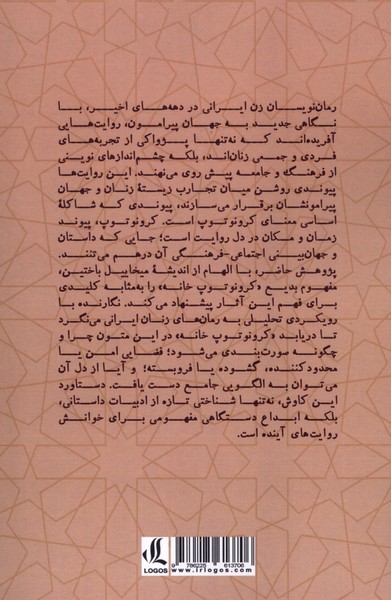 رمان‌نویسان زن ایرانی در دهه‌های اخیر، با
نگاهی جدید به جهان پیرامون، روایت‌هایی
آفریده‌اند که نه‌تنها پژواکی از تجربه‌های
فردی و جمعی زنان‌اند، بلکه چشم‌اندازهای نوینی
از فرهنگ و جامعه پیش روی می‌نهند. این روایت‌ها
پیوندی روشن میان تجارب زیستهٔ زنان و جهان
پیرامونشان برقرار می‌سازند، پیوندی که شاکلهٔ
اساسی معنای کرونوتوپ است. کرونوتوپ، پیوند
زمان و مکان در دل روایت است؛ جایی که داستان
و جهان‌بینی اجتماعی-فرهنگی آن درهم می‌تنند.
پژوهش حاضر، با الهام از اندیشهٔ میخاییل باختین،
مفهوم بدیع «کرونوتوپ خانه» را به‌مثابه کلیدی
برای فهم این آثار پیشنهاد می‌کند. نگارنده با
رویکردی تحلیلی به رمان‌های زنان ایرانی می‌نگرد
تا دریابد «کرونوتوپ خانه» در این متون چرا و
چگونه صورت‌بندی می‌شود؛ فضایی امن یا
محدودکننده، گشوده یا فروبسته؛ و آیا از دل آن
می‌توان به الگویی جامع دست یافت. دستاورد
این کاوش، نه‌تنها شناختی تازه از ادبیات داستانی،
بلکه ابداع دستگاهی مفهومی برای خوانش
روایت‌های آینده است.
LOGOS
9 786225 613706
www.irlogos.com